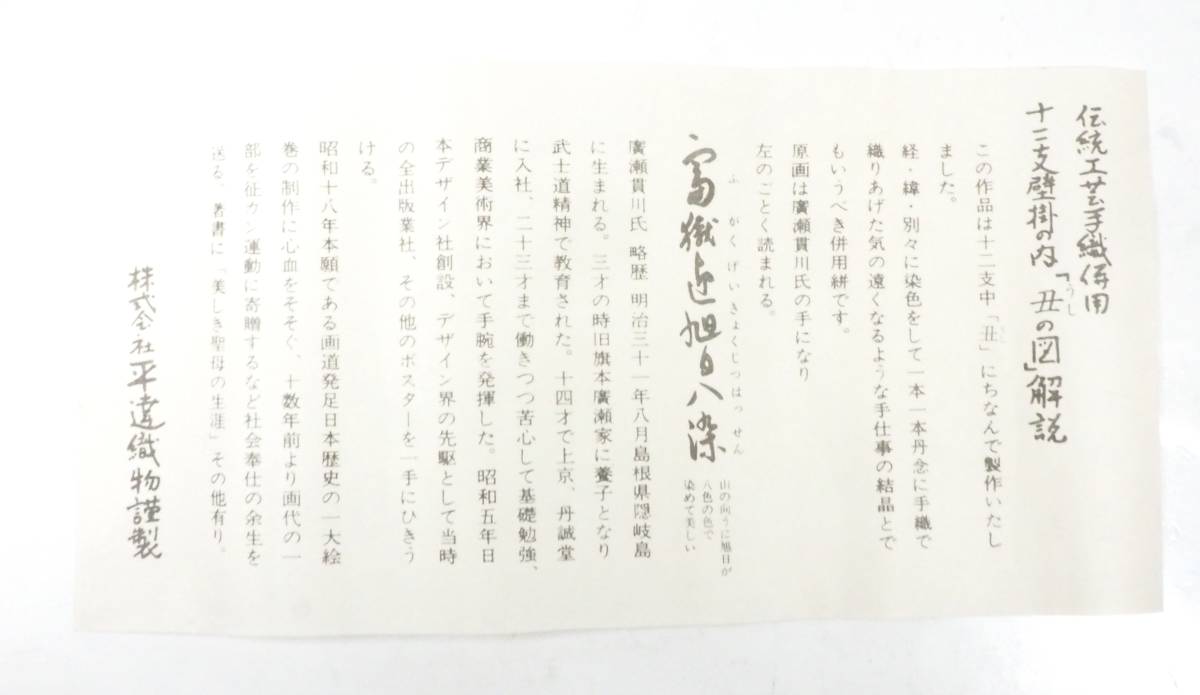 伝統工芸手織併用
十二支壁掛の内「丑の図」解説
うし
この作品は十二支中「丑」にちなんで製作いたし
ました。
経・緯・別々に染色をして一本一本丹念に手織で
織りあげた気の遠くなるような手仕事の結晶とで
もいうべき併用絣です。
原画は廣瀬貫川氏の手になり
左のごとく読まれる。
ふがくげいきょくじつはっせん
富嶽迎旭日八染
山の向うに旭日が
八色の色で
染めて美しい
廣瀬貫川氏 略歴 明治三十一年八月島根県隠岐島
に生まれる。三才の時旧旗本廣瀬家に養子となり
武士道精神で教育された。十四才で上京、丹誠堂
に入社、二十三才まで働きつつ苦心して基礎勉強、
商業美術界において手腕を発揮した。昭和五年日
本デザイン社創設、デザイン界の先駆として当時
の全出版業社、その他のポスターを一手にひきう
ける。
昭和十八年本願である画道発足日本歴史の一大絵
巻の制作に心血をそそぐ、十数年前より画代の一
部を征ガン運動に寄贈するなど社会奉仕の余生を
送る、著書に「美しき聖母の生涯」その他有り。
株式会社平達織物謹製